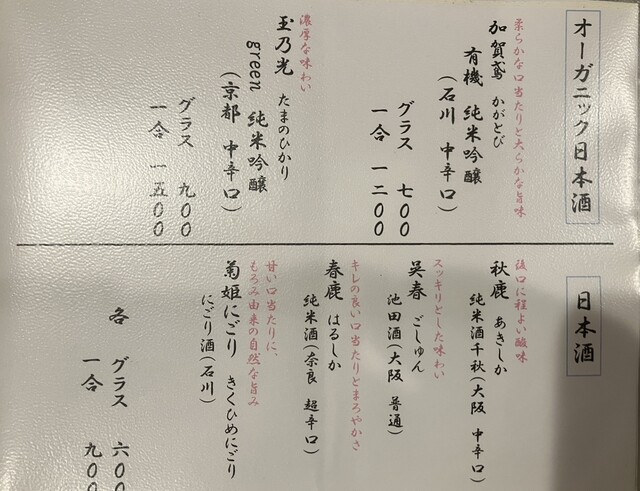 オーガニック日本酒
柔らかな口当たりと大らかな旨味
加賀鳶 かがとび
有機 純米吟醸
(石川 中辛口)
グラス 七00
一合 一二00
濃厚な味わい
玉乃光 たまのひかり
green 純米吟醸
(京都 中辛口)
グラス 九00
一合 一五00
日本酒
後口に程よい酸味
秋鹿 あきしか
純米酒千秋(大阪 中辛口)
スッキリとした味わい
呉春 ごしゅん
池田酒(大阪 普通)
キレの良い口当たりとまろやかさ
春鹿 はるしか
純米酒(奈良 超辛口)
甘い口当たりに、
もろみ由来の自然な旨み
菊姫にごり きくひめにごり
にごり酒(石川)
各 グラス 六00
一合 九00